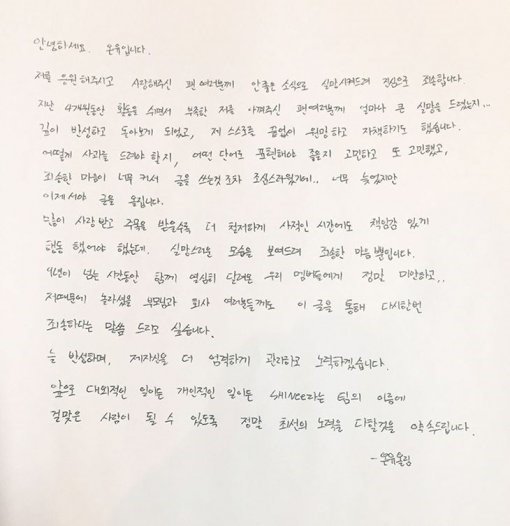 안녕하세요. 온유입니다.
저를 응원해주시고 사랑해주신 팬 여러분께 안좋은 소식으로 실망시켜드려 진심으로 죄송합니다.
지난 4개월동안 활동을 쉬면서 부족한 저를 아껴주신 팬여러분께 얼마나 큰 실망을 드렸는지...
깊이 반성하고 돌아보게 되었고, 제 스스로를 끊임없이 원망하고 자책하기도 했습니다.
어떻게 사과를 드려야 할지, 어떤 단어로 표현해야 좋을지 고민하고 또 고민했고,
죄송한 마음이 너무 커서 글을 쓰는것 조차 조심스러웠기에.. 너무 늦었지만
이제서야 글을 올립니다.
많이 사랑받고 주목을 받을수록 더 철저하게 사적인 시간에도 책임감 있게
행동 했어야 했는데. 실망스러운 모습을 보여드려 죄송한 마음 뿐입니다.
9년이 넘는 시간동안 함께 열심히 달려온 우리 멤버들에게 정말 미안하고..
저때문에 놀라셨을 부모님과 회사 여러분들께도 이 글을 통해 다시한번
죄송하다는 말씀 드리고 싶습니다.
늘 반성하며, 제자신을 더 엄격하게 관리하고 노력하겠습니다.
앞으로 대외적인 일이든 개인적인 일이든 SHINee라는 팀의 이름에
걸맞은 사람이 될 수 있도록 정말 최선의 노력을 다할것을 약속드립니다.
-온유올림